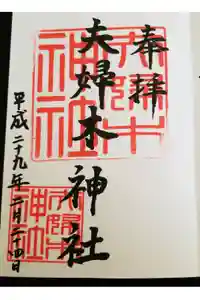 奉拝
夫婦木神社
平成二十九年二月二十四日